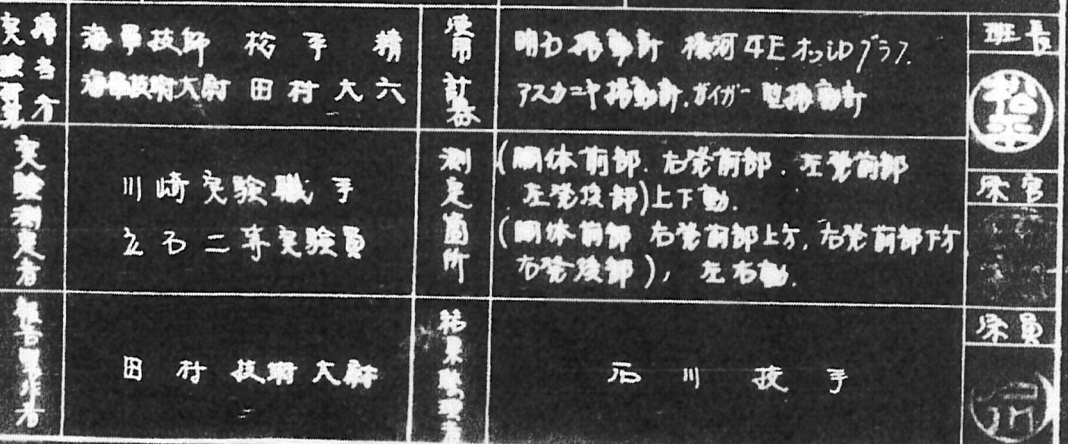 実験担当者
海軍技師 松平精
海軍技術大尉 田村大六
使用計器
明石振動計 横河4Eオッシログラフ.
アスカニヤ振動計.ガイガー型振動計
班長
松平
実験測定者
川崎実験職手
立石二等実験員
測定箇所
(胴体前部.右発前部.左発前部
左発後部)上下動.
(胴体前部 右発前部上方,右発前部下方
右発後部),左右動.
部員
報告製作者
田村技術大尉
結果整理者
石川技手